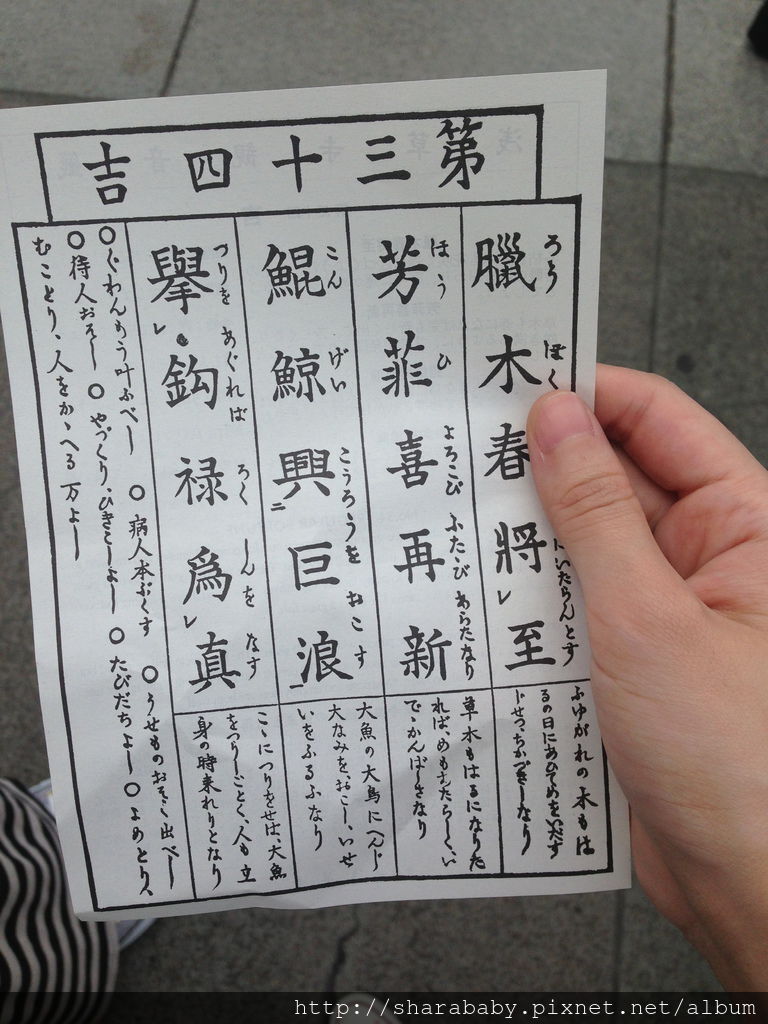 第三十四吉
臘木春將至
ろう ぼく
にいたらんとす
ふゆがれの木もは
るの日にあひてめをいだす
じせつちかづきしなり
芳菲喜再新
ほう ひ よろこび ふたゝび あらたなり
草木もはるになりた
れば、めもあたらしく、い
で、かんばしきなり
鯤鯨興巨浪
こん げい こうろうを おこす
大魚の大鳥にへんじ
大なみをおこし、いせ
いをふるふなり
擧鈎禄爲真
つりを あぐれば ろく しんを なす
こゝにつりをせは大魚
をつりしごとく、人も立
身の時来れりとなり
○ぐわんもう叶ふべし ○病人本ぶくす ○うせものおそく出べし
○待人おそし ○やづくり、ひきこしよし ○たびだちよし ○よめとり、
むことり、人をかゝへる 万よし
http://sharababy.pixnet.net/album